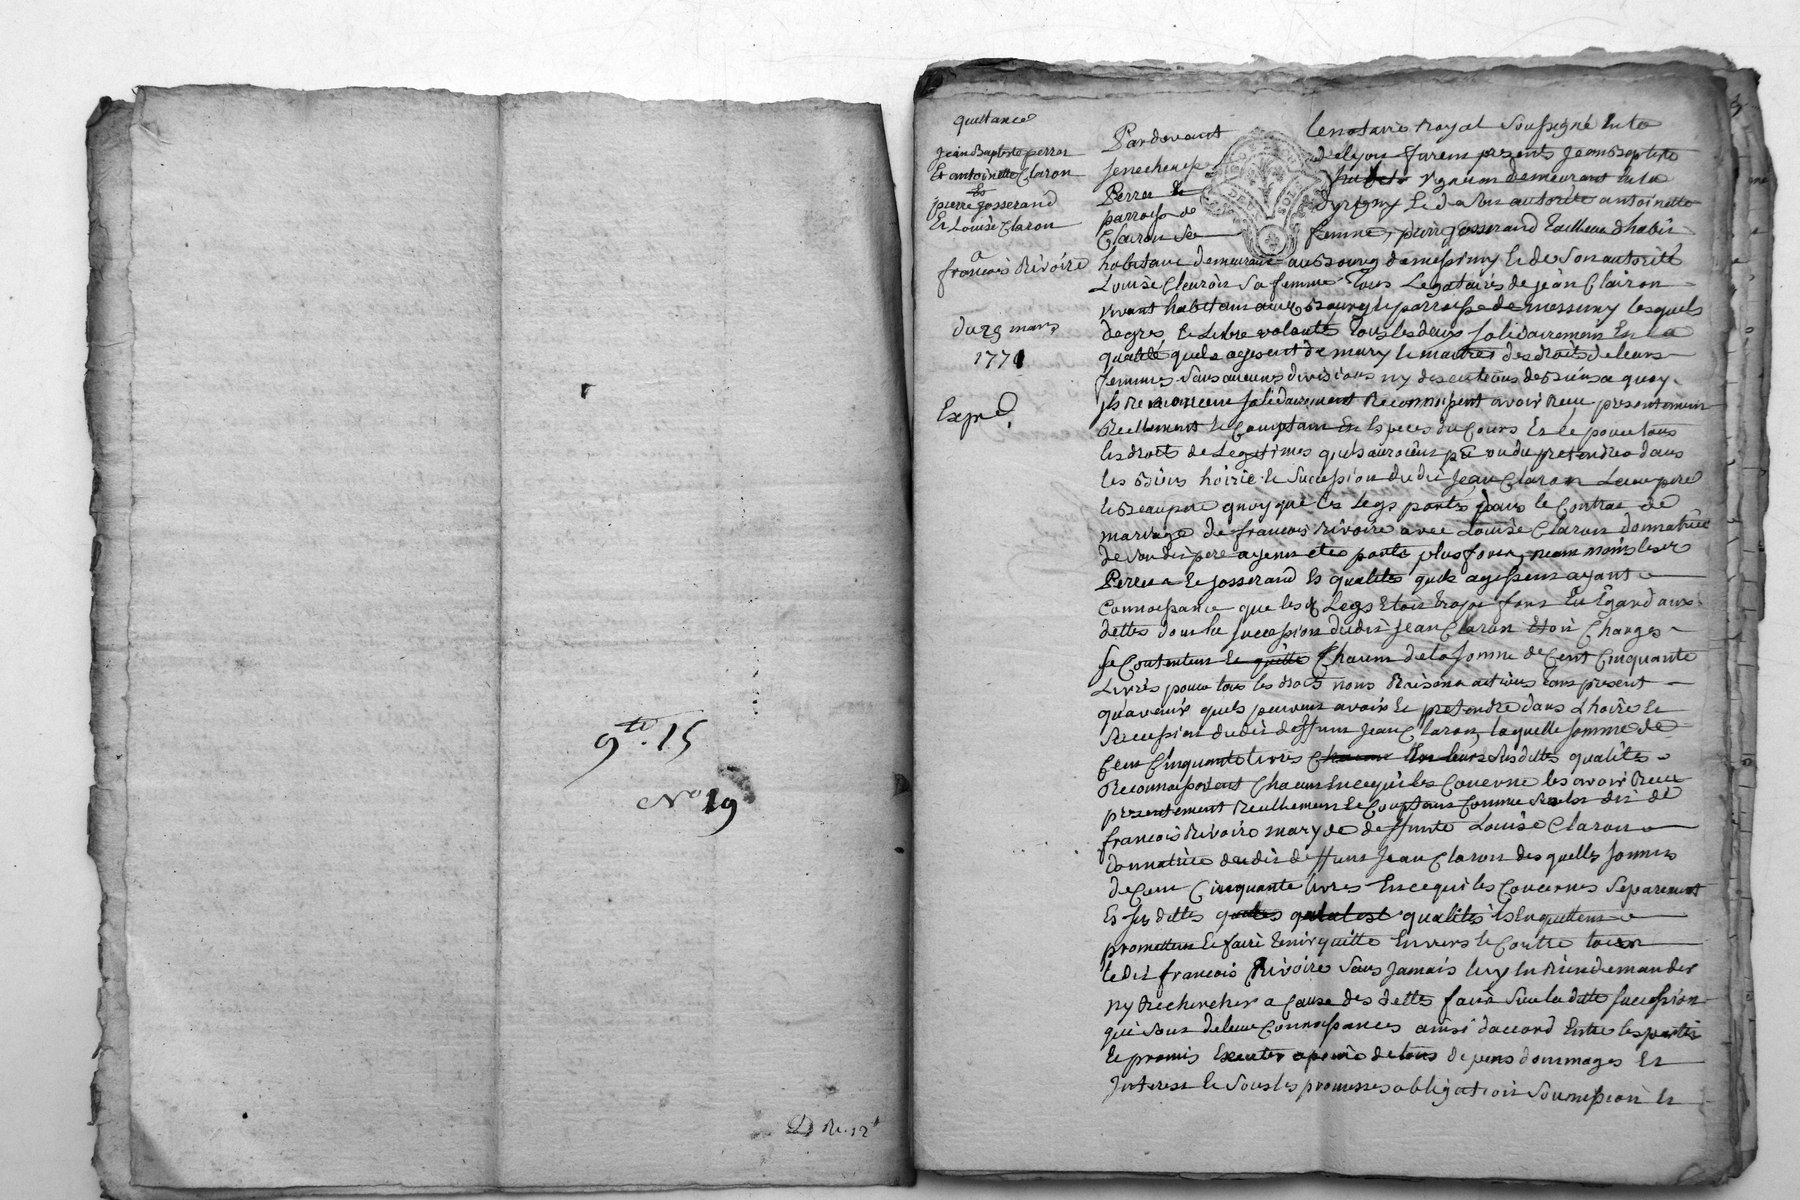 9te. 15
No 19
D R. 12s
quittance
Jean Baptiste perra
Et antoinette Claron
Et
pierre Josserand
Et Louise Claron
a
francois Rivoire
du 29 mars
1771
Expé
Pardevant le notaire Royal soussigné En la
senechaussé de lyon furent presents Jean Baptiste
Perra vigneron demeurant En la
parroisse de Et de son autorité antoinette
Claron sa femme, pierre Josserand tailleur d'habit
habitant demeurant au Bourg de messimy Et de son autorité
Louise Claron sa femme tous Legataires de jean Clairon
vivant habitant aux Bourg Et parroisse de messimy lesquels
de gré Et Libre volonté tous les deux solidairement En la
qualité quils agissent de mary Et maitres des droits de leurs
femmes sans aucunes divisions ny discutions de Biens a quoy
ils Renoncent solidairement Reconnoissent avoir Reçu presentement
Reellement Et Comptant En Especes du Cours Et ce pour tous
les droits de Legitimes quils auroient pû ou du pretendres dans
les Biens hoirie Et succession dudit Jean Claron Leur pere
Et Beaupere quoy que les Legs portés dans le Contrat de
mariage de francois Rivoire avec Louise Claron donnatrice
de son dit pere ayent etes portés plus fort, neanmoins lesdts
Perra Et Josserand Es qualites quils agissent ayant
Connoissance que lesd Legs Etoit trop fort En Egard aux
dettes dont la succession dudit Jean Claron Etoit Charges
se Contentent Et quitte Chacun de la somme de Cent Cinquante
Livres pour tous les droits noms Raisons actions tant present
qu'avenir quils peuvent avoir Et pretendre dans L'hoirie Et
succession dudit deffunt Jean Claron, laquelle somme de
Cent Cinquante livres Chacune En leurs susdittes qualités
Reconnoissent Chacun En ce qui les Concerne les avoir Reçu
presentement Reellement Et Comptant Comme dit de
francois Rivoire mary de deffunte Louise Claron
donnatrice dudit deffunt Jean Claron des quelles sommes
de Cent Cinquante livres En ce qui les Concernes separement
Es susdittes qualités ils En quittent
promettent Et faire tenir quitte Envers Et Contre tous
le dit francois Rivoire sans Jamais luy En Rien demander
ny Rechercher a Cause des dettes fait sur la ditte succession
qui sont de leur Connoissances ainsi d'accord Entre les parties
Et promis Executer a peine de tous depens dommages Et
Interest Et sous les promesses obligation soumission Et